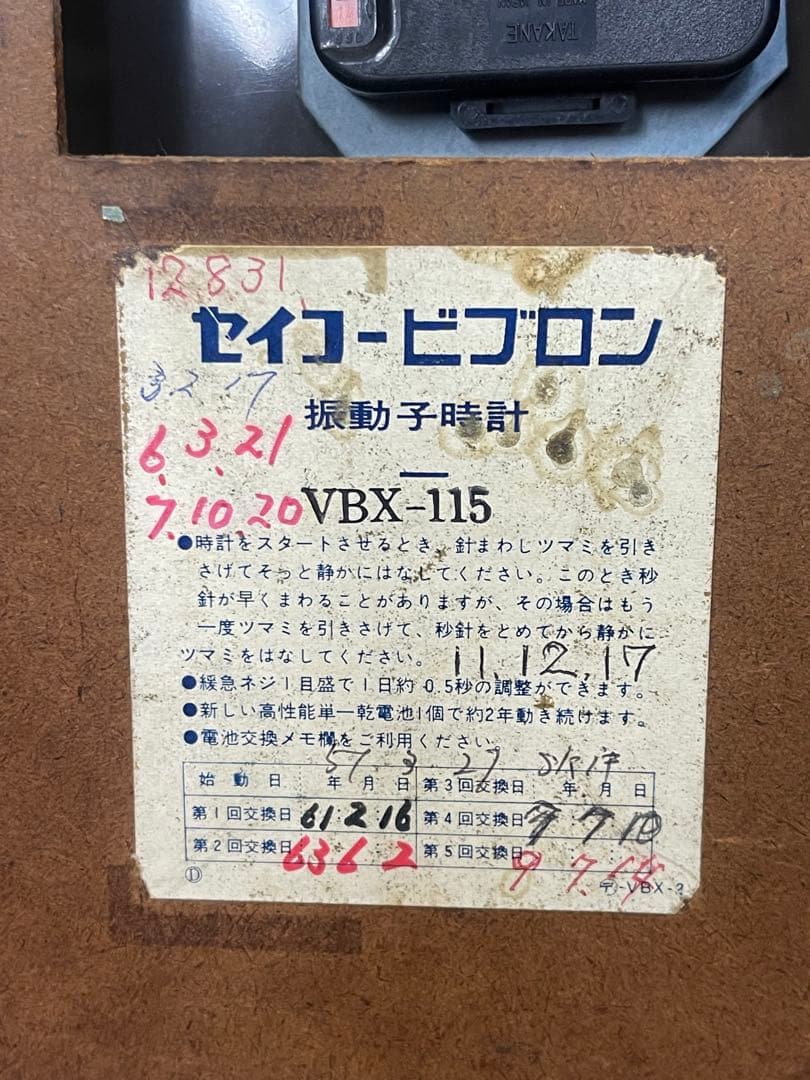 TAKANE
MADE IN JAPAN
12.8.31
セイコービブロン
3 2 17
振動子時計
6.3.21
7.10.20
VBX-115
●時計をスタートさせるとき、針まわしツマミを引き
さげてそっと静かにはなしてください。このとき秒
針が早くまわることがありますが、その場合はもう
一度ツマミを引きさげて、秒針をとめてから静かに
ツマミをはなしてください。 11.12.17
●緩急ネジ1目盛で1日約0.5秒の調整ができます。
●新しい高性能単一乾電池1個で約2年動き続けます。
●電池交換メモ欄をご利用ください。
始動日 57年3月29日 第3回交換日 年 月 日
第1回交換日 61 2 16 第4回交換日 7 7 10
第2回交換日 63 6 2 第5回交換日 9 7
Ⓓ 〒-VBX-2